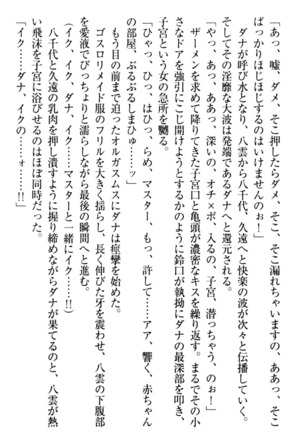 「あっ、嘘、ダメ、そこ押したらダメ、そこ、そこ漏れちゃいますの、あっ、そこ
ばっかりほじほじするのはいけませんのぉ！」
ダナが呼び水となり、八雲から八千代、久遠へと快楽の波が次々と伝播していく。
そしてその淫靡な大波は発端であるダナへと還元される。
「やっ、あっ、ああっ、深いの、オチ×ポ、入るの、子宮、潜っちゃう、のぉ！」
ザーメンを求めて降りてきた子宮口と亀頭が濃密なキスを繰り返す。まるでその小
さなドアを強引にこじ開けようとするかのように鈴口が執拗にダナの最深部を叩き、
子宮という女の急所を嬲る。
「ひゃっ、ひっ、はひっ、らめ、マスター、もっ、許して……アア、響く、赤ちゃん
の部屋、ぶるぶるしまひゅ……ッ」
もう目の前まで迫ったオルガスムスにダナは痙攣を始めた。
ゴスロリメイド服のフリルを大きく揺らし、長く伸びた牙を震わせ、八雲の下腹部
を愛液でびっちょりと濡らしながら最後の瞬間へと進む。
（イク、イク、ダナ、イク……マスターと一緒にイク……ッ!!）
八千代と久遠の乳肉を押し潰すように握り締めながらダナが果てるのと、八雲が熱
い飛沫を子宮に浴びせるのはほぼ同時だった。
「イク……ダナ、イクの……ォ……!!」